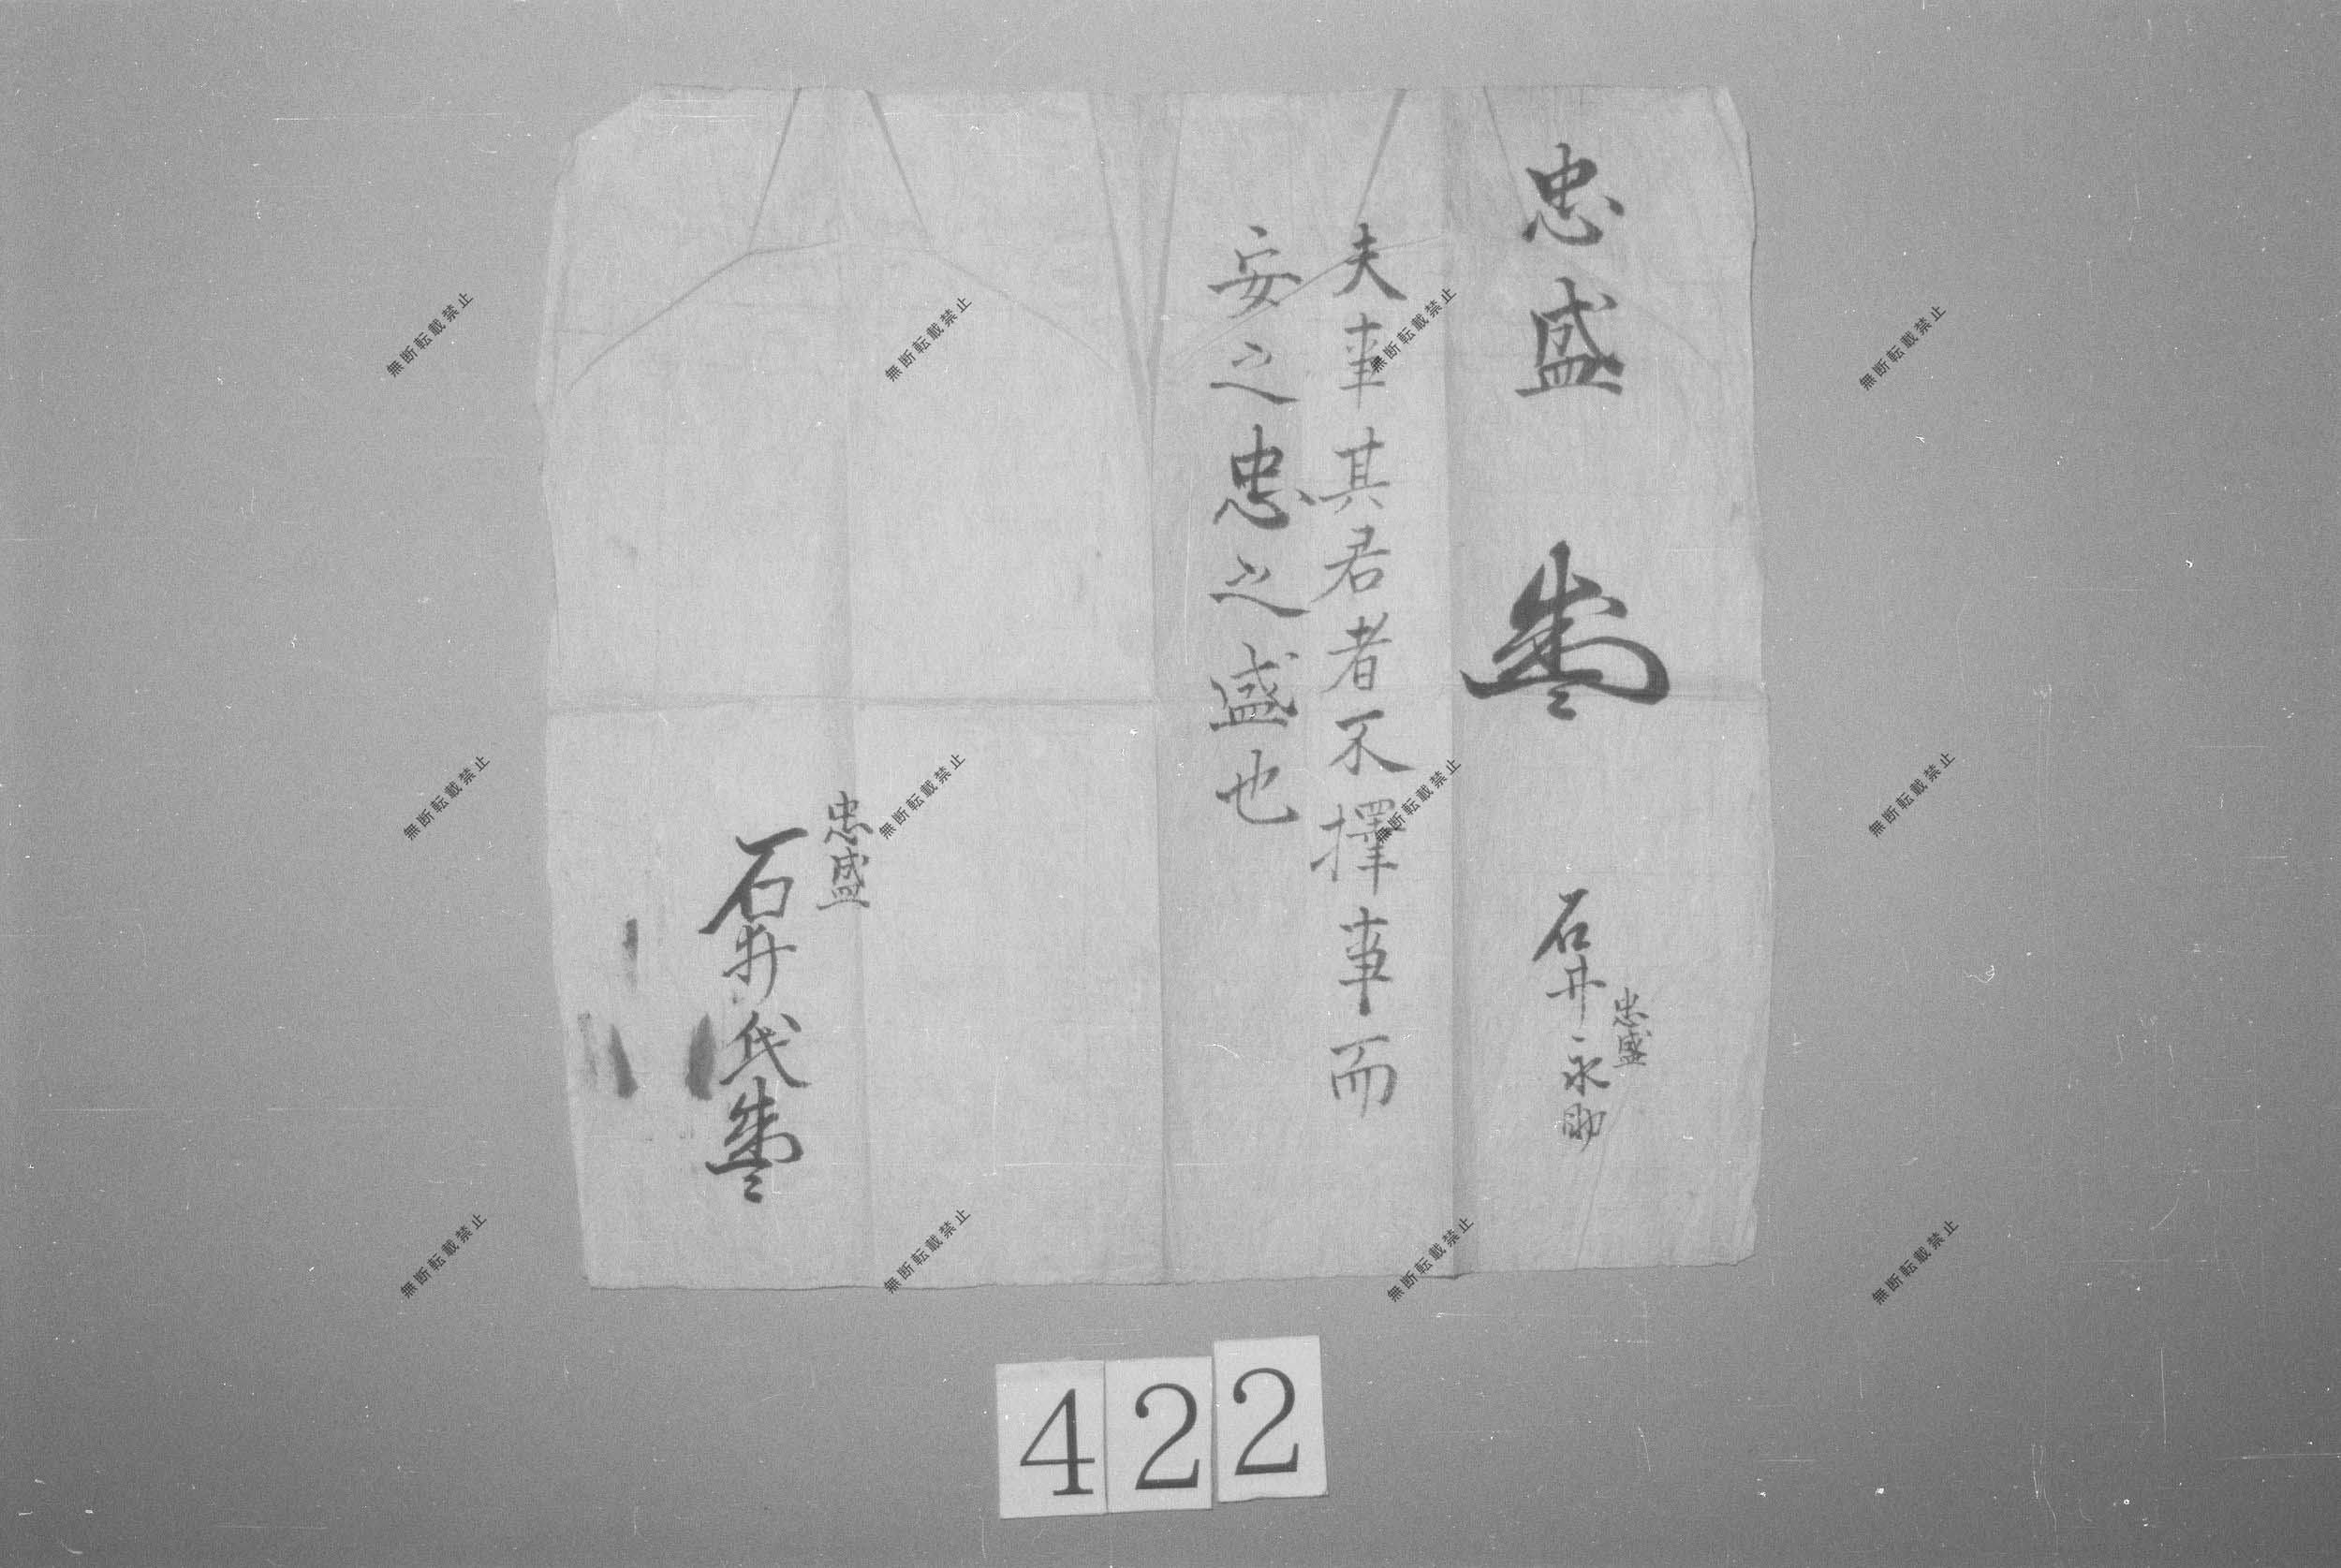 忠盛
石井永助
忠盛
夫事其君者不擇事而
安之忠之盛也
忠盛
石井氏
422
無断転載禁止
無断転載禁止
無断転載禁止
無断転載禁止
無断転載禁止
無断転載禁止
無断転載禁止
無断転載禁止
無断転載禁止
無断転載禁止
無断転載禁止
無断転載禁止